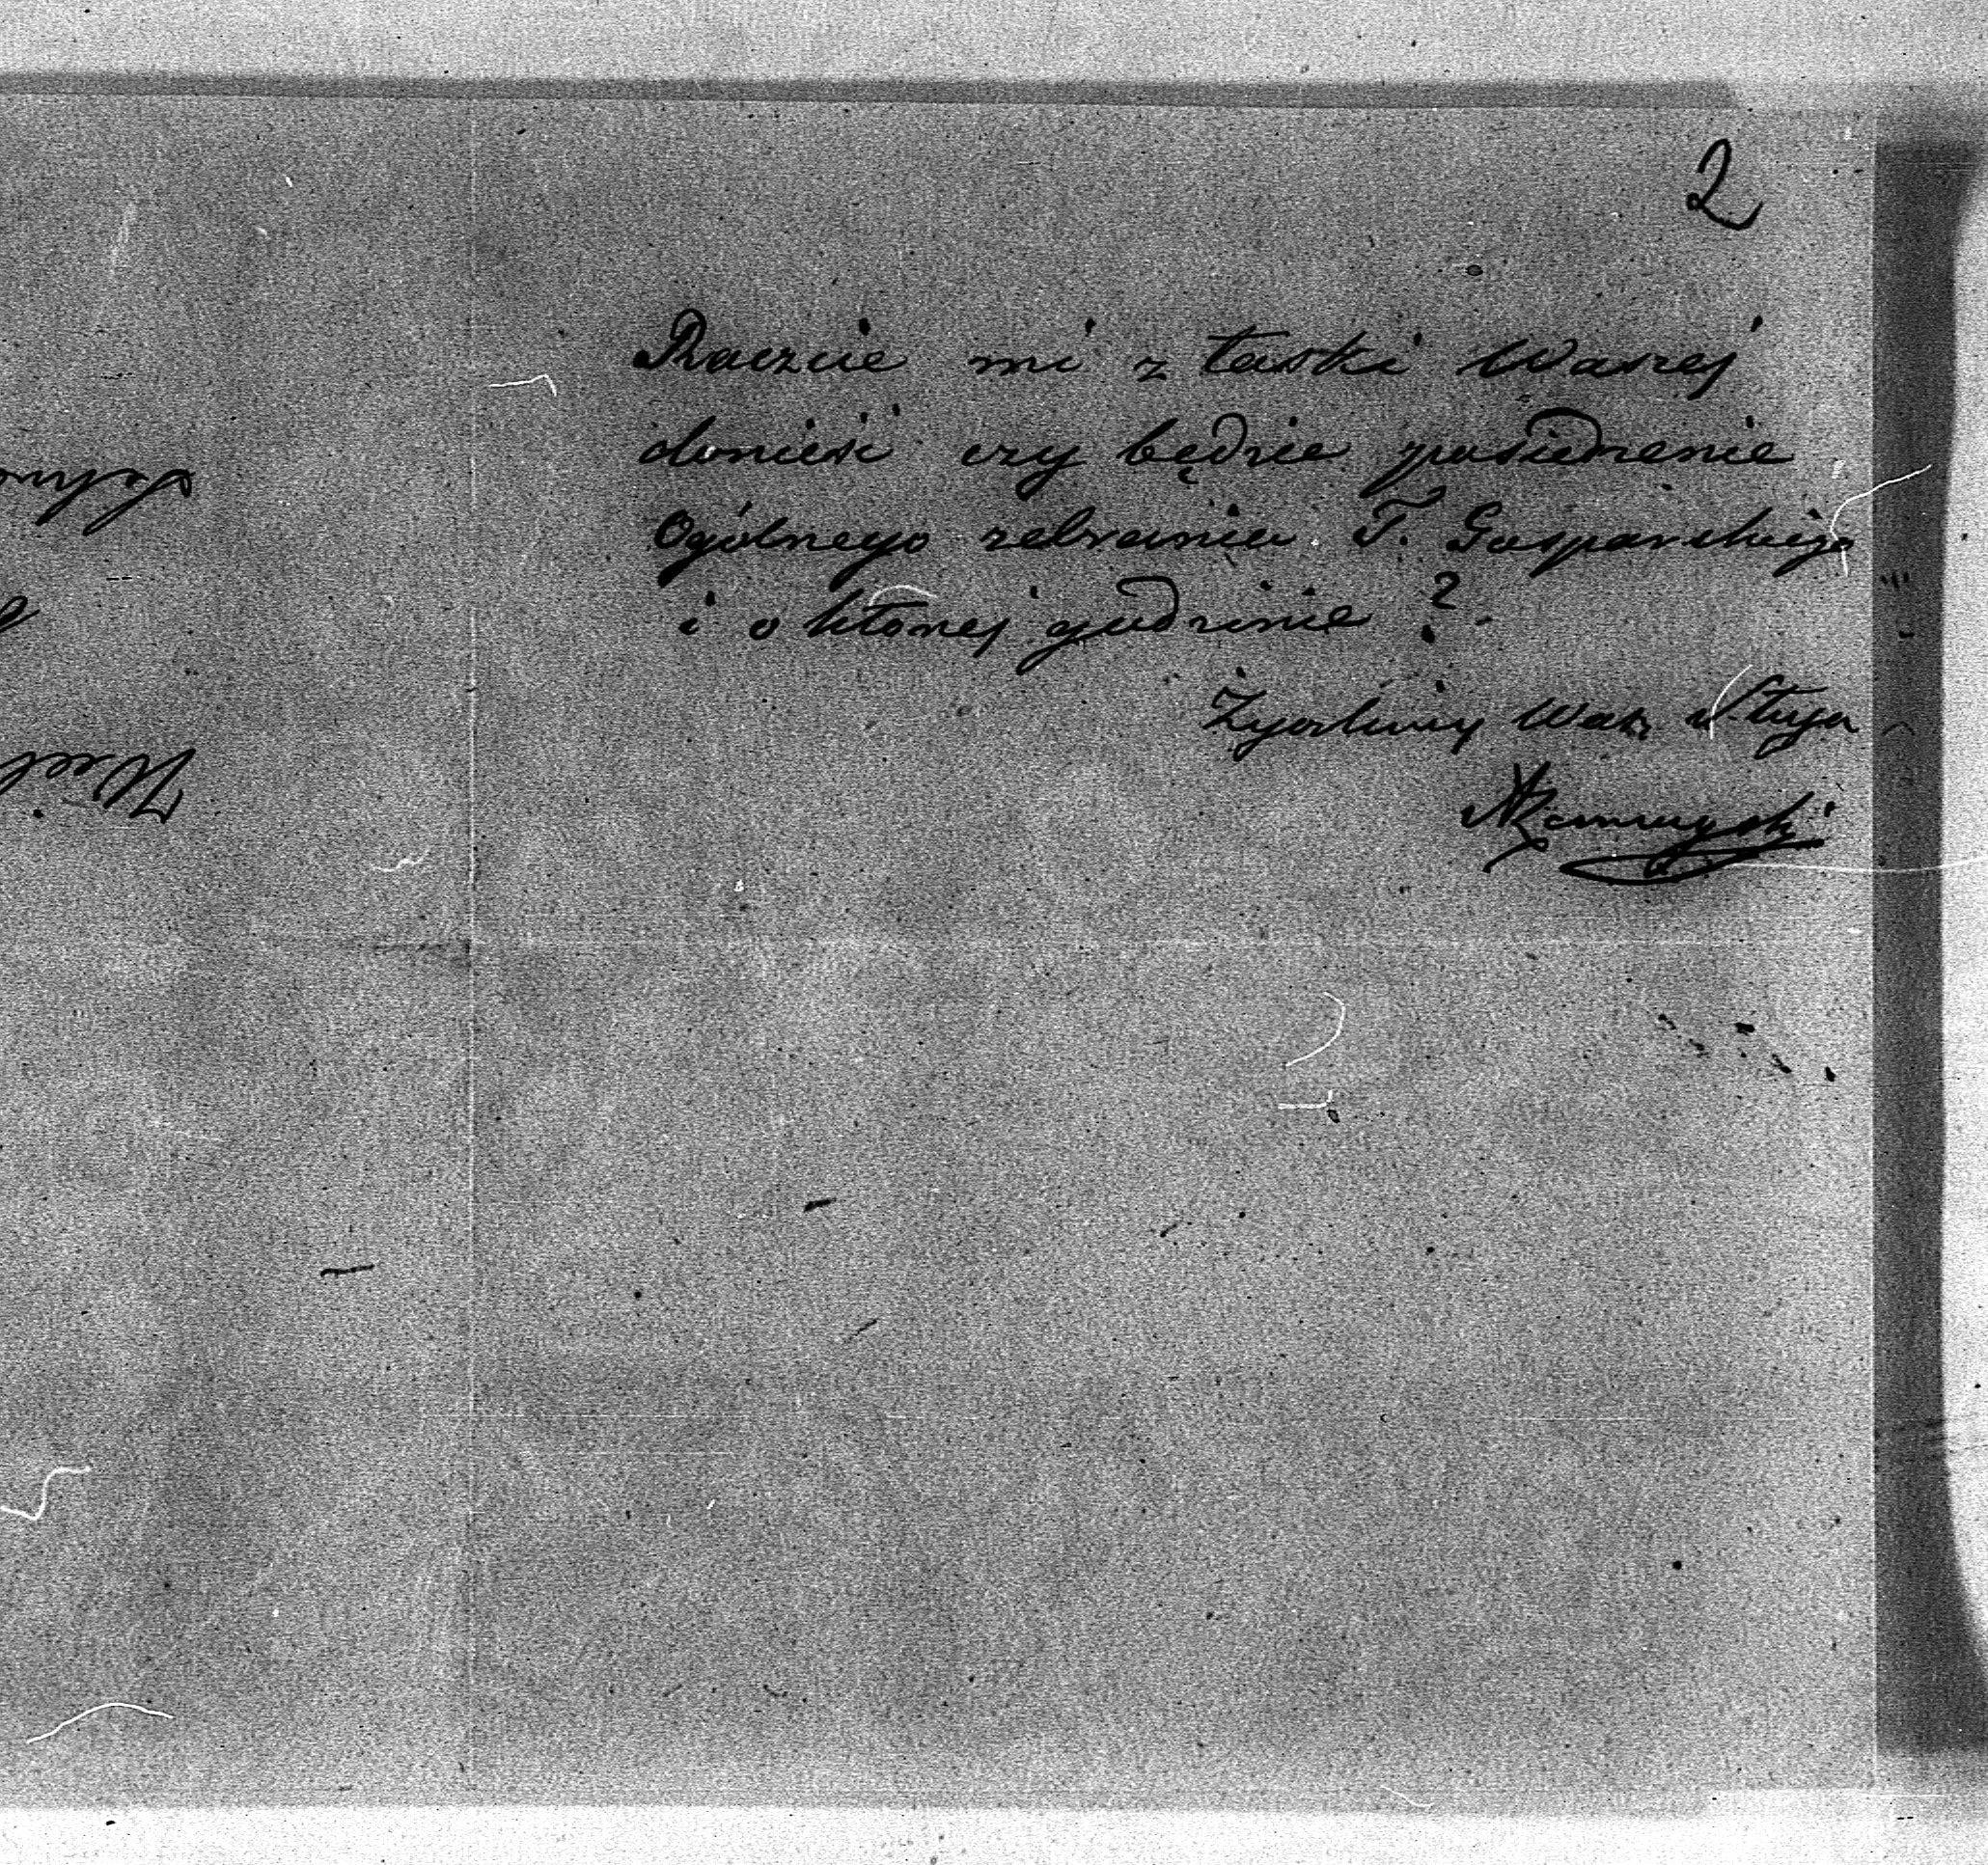 2
Raczcie mi z łaski Waszej
donieść czy będzie posiedzenie
Ogólnego zebrania T. Gospodarskiego
i o której godzinie?
Życzliwy Wasz Sługa